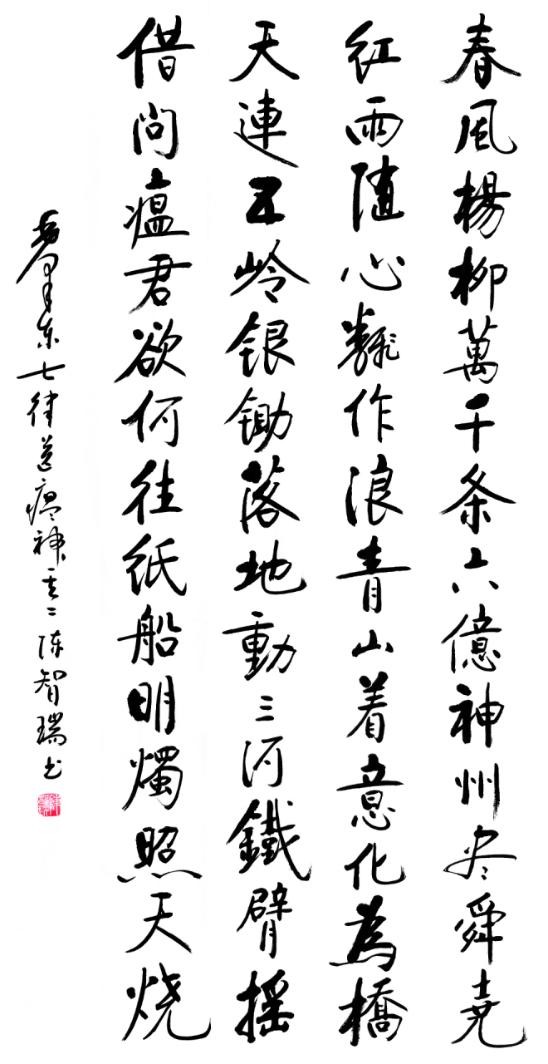 春風楊柳萬千条六億神州尽舜尭
红雨随心翻作浪青山着意化為橋
天連五岭银锄落地動三河鐵臂摇
借問瘟君欲何往纸船明燭照天烧
毛泽东七律送瘟神其二陈智瑞书